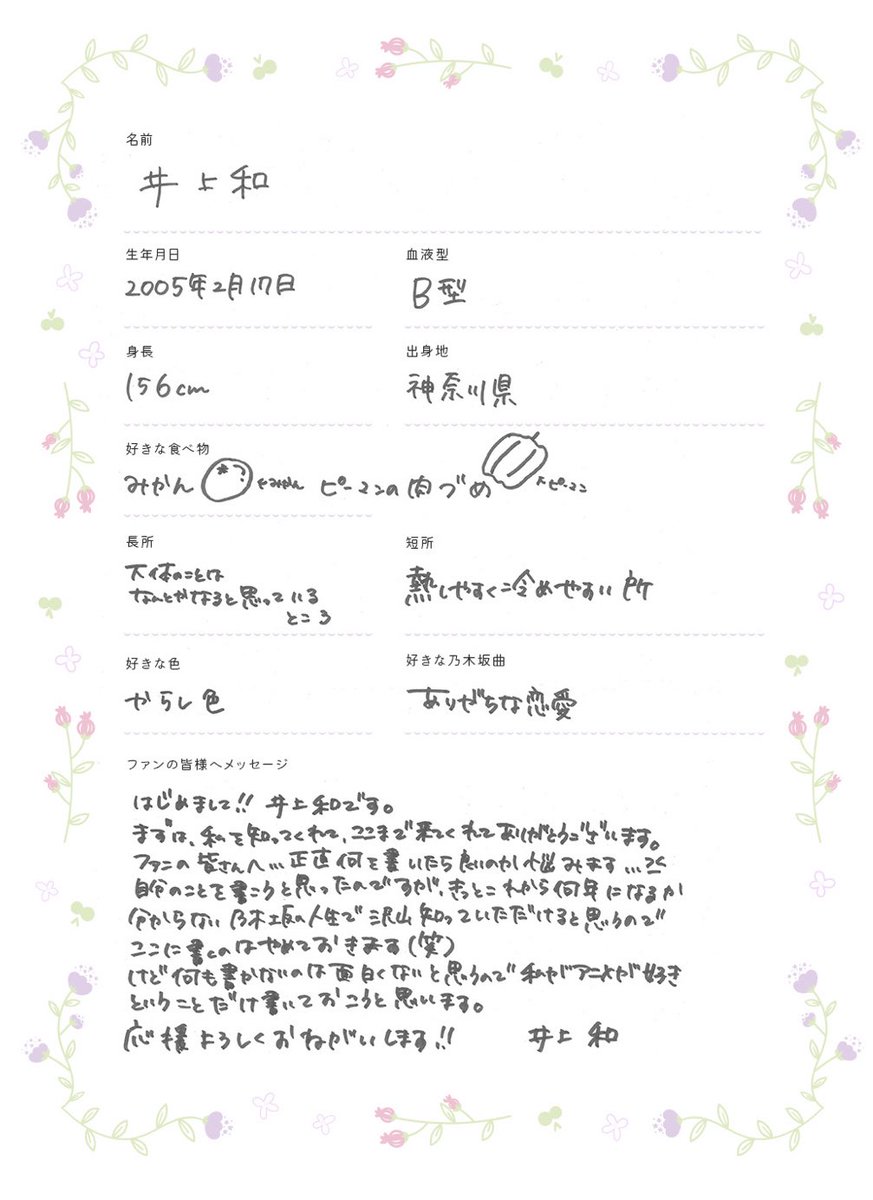 名前
井上和
生年月日
血液型
2005年2月17日
B型
身長
出身地
156cm
神奈川県
好きな食べ物
みかん ←みかん ピーマンの肉づめ ←ピーマン
長所
短所
大体のことは
なんとかなると思っている
ところ
熱しやすく冷めやすい所
好きな色
好きな乃木坂曲
からし色
ありがちな恋愛
ファンの皆様へメッセージ
はじめまして!! 井上和です。
まずは、私を知ってくれて、ここまで来てくれてありがとうございます。
ファンの皆さんへ…正直何を書いたら良いのか悩みます…
自分のことを書こうと思ったのですが、きっとこれから何年になるか
分からない乃木坂の人生で沢山知っていただけると思うので
ここに書くのはやめておきます(笑)
けど何も書かないのは面白くないと思うので私がアニメが好き
ということだけ書いておこうと思います。
応援よろしくおねがいします!! 井上 和